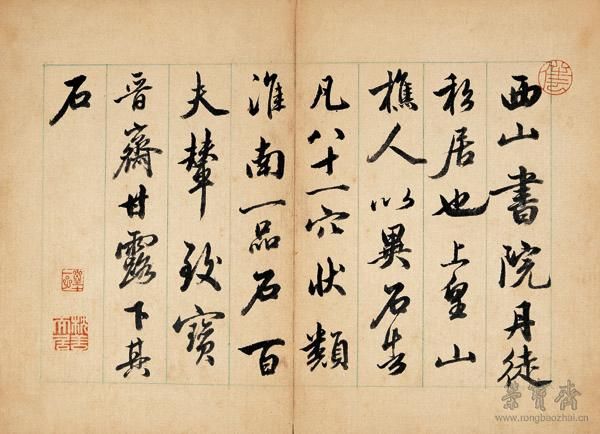 西山書院丹徒
私居也上皇山
樵人以異石告
凡八十一穴狀類
淮南一品石百
夫輦致寶
晉齋甘露下其
石
榮寶齋
www.rongbaozhai.cn